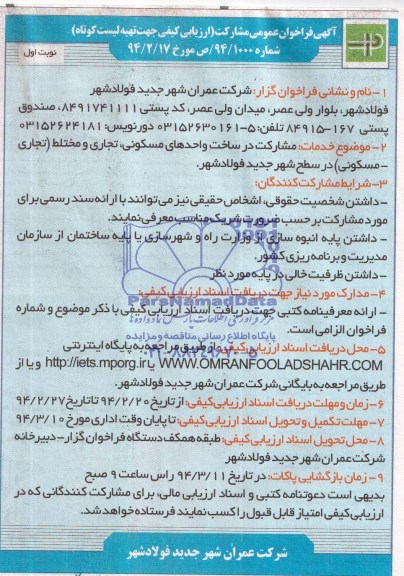 آگهی فراخوان عمومی مشارکت (ارزیابی کیفی جهت تهیه لیست کوتاه)
شماره ۹۴/۱۰۰۰/ص مورخ ۹۴/۲/۱۷
نوبت اول
۱- نام و نشانی فراخوان گزار: شرکت عمران شهر جدید فولادشهر
فولادشهر، بلوار ولی عصر، میدان ولی عصر، کد پستی ۸۴۹۱۷۴۱۱۱۱، صندوق
پستی ۱۶۷-۸۴۹۱۵ تلفن: ۵-۰۳۱۵۲۶۳۰۱۶۱ دورنویس: ۰۳۱۵۲۶۲۴۱۸۱
۲- موضوع خدمات: مشارکت در ساخت واحدهای مسکونی، تجاری و مختلط (تجاری
-مسکونی) در سطح شهر جدید فولادشهر.
۳- شرایط مشارکت کنندگان:
-داشتن شخصیت حقوقی، اشخاص حقیقی نیز می توانند با ارائه سند رسمی برای
مورد مشارکت بر حسب ضرورت شریک مناسب معرفی نمایند.
- داشتن پایه انبوه سازی از وزارت راه و شهرسازی یا پایه ساختمان از سازمان
مدیریت و برنامه ریزی کشور.
-داشتن ظرفیت خالی در پایه مورد نظر
۴- مدارک مورد نیاز جهت دریافت اسناد ارزیابی کیفی:
- ارائه معرفینامه کتبی جهت دریافت اسناد ارزیابی کیفی با ذکر موضوع و شماره
فراخوان الزامی است.
۵- محل دریافت اسناد ارزیابی کیفی: از طریق مراجعه به پایگاه اینترنتی
WWW.OMRANFOOLADSHAHR.COM یا http://iets.mporg.ir و یا از
طریق مراجعه به بایگانی شرکت عمران شهر جدید فولادشهر.
۶- زمان و مهلت دریافت اسناد ارزیابی کیفی: از تاریخ ۹۴/۲/۲۰ تا تاریخ ۹۴/۲/۲۷
۷- مهلت تکمیل و تحویل اسناد ارزیابی کیفی: تا پایان وقت اداری مورخ ۹۴/۳/۱۰
۸- محل تحویل اسناد ارزیابی کیفی: طبقه همکف دستگاه فراخوان گزار- دبیرخانه
شرکت عمران شهر جدید فولادشهر
۹- زمان بازگشایی پاکات: در تاریخ ۹۴/۳/۱۱ راس ساعت ۹ صبح
بدیهی است دعوتنامه کتبی و اسناد ارزیابی مالی، برای مشارکت کنندگانی که در
ارزیابی کیفی امتیاز قابل قبول را کسب نمایند فرستاده خواهد شد.
شرکت عمران شهر جدید فولادشهر
ParsNamadData
پایگاه اطلاع رسانی مناقصه و مزایده